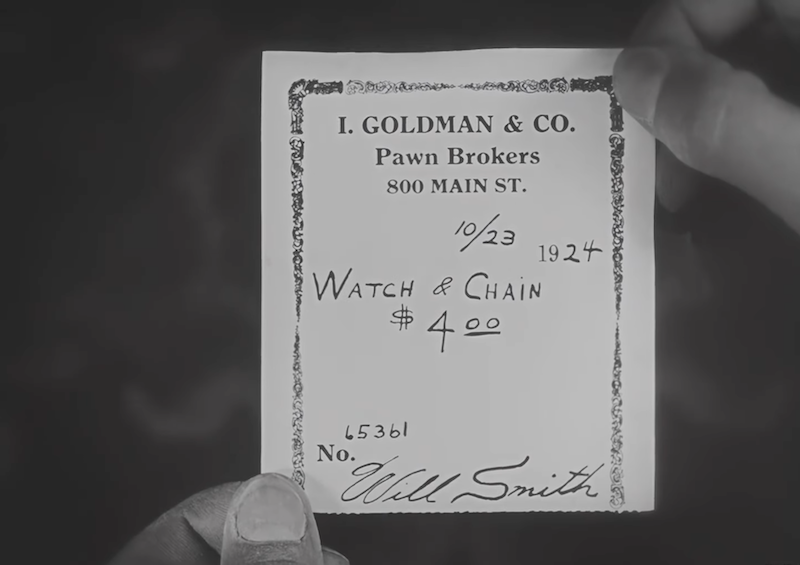 I. GOLDMAN & CO.
Pawn Brokers
800 MAIN ST.
10/23 1924
WATCH & CHAIN
$ 4 00
65361
No.
Will Smith